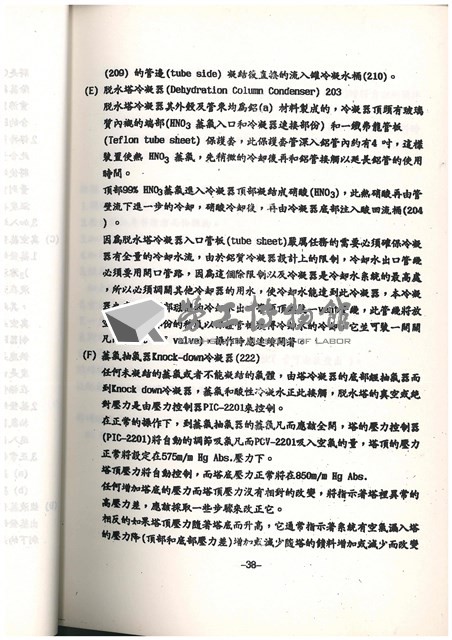 (209) 的管邊(tube side) 凝結後直接的流入罐冷凝水桶(210)。
(E) 脫水塔冷凝器(Dehydration Column Condenser) 203
脫水塔冷凝器其外殼及管束均爲鋁(a) 材料製成的，冷凝器頂頭有玻璃
質內襯的端部(HNO3 蒸氣入口和冷凝器連接部份) 和一鐵弗龍管板
(Teflon tube sheet) 保護套，此保護套管深入鋁管內約有4 吋，這樣
裝置使熱 HNO3 蒸氣，先稍微的冷卻後再和鋁管接觸以延長鋁管的使用
時間。
頂部99% HNO3蒸氣進入冷凝器頂部凝結成硝酸(HNO3)，此熱硝酸再由管
壁流下進一步的冷卻，硝酸冷卻後，再由冷凝器底部注入酸回流桶(204
) 。
因爲脫水塔冷凝器入口管板(tube sheet)嚴厲任務的需要必須確保冷凝
器有全量的冷卻水流，由於鋁質冷凝器設計上的限制，冷卻水出口管邊
必須要用開口管路，因爲這個除限制以及冷凝器是冷卻水系統的最高處
，所以必須調開其他冷卻器的用水，使冷卻水能達到此冷凝器，本冷凝
勞工博物館
MUSEUM OF LABOR
valve) 操作時應連續開著
(F) 蒸氣抽氣器Knock-down冷凝器(222)
任何未凝結的蒸氣或者不能凝結的氣體，由塔冷凝器的底部經抽氣器而
到Knock down冷凝器，蒸氣和酸性冷凝水正此接觸，脫水塔的真空或絶
對壓力是由壓力控制器PIC-2201來控制。
在正常的操作下，到蒸氣抽氣器的蒸汽凡而應該全開，塔的壓力控制器
(PIC-2201)將自動的調節吸氣凡而PCV-2201吸入空氣的量，塔頂的壓力
正常將設定在575m/m Hg Abs.壓力下。
塔頂壓力將自動控制，而塔底壓力正常將在850m/m Hg Abs.
任何增加塔底的壓力而塔頂壓力沒有相對的改變，將指示著塔裡異常的
高壓力差，應該採取一些步驟來改正它。
相反的如果塔頂壓力隨著塔底而升高，它通常指示著系統有空氣漏入塔
的壓力降(頂部和底部壓力差)增加或減少隨塔的餵料增加或減少而改變
-38-